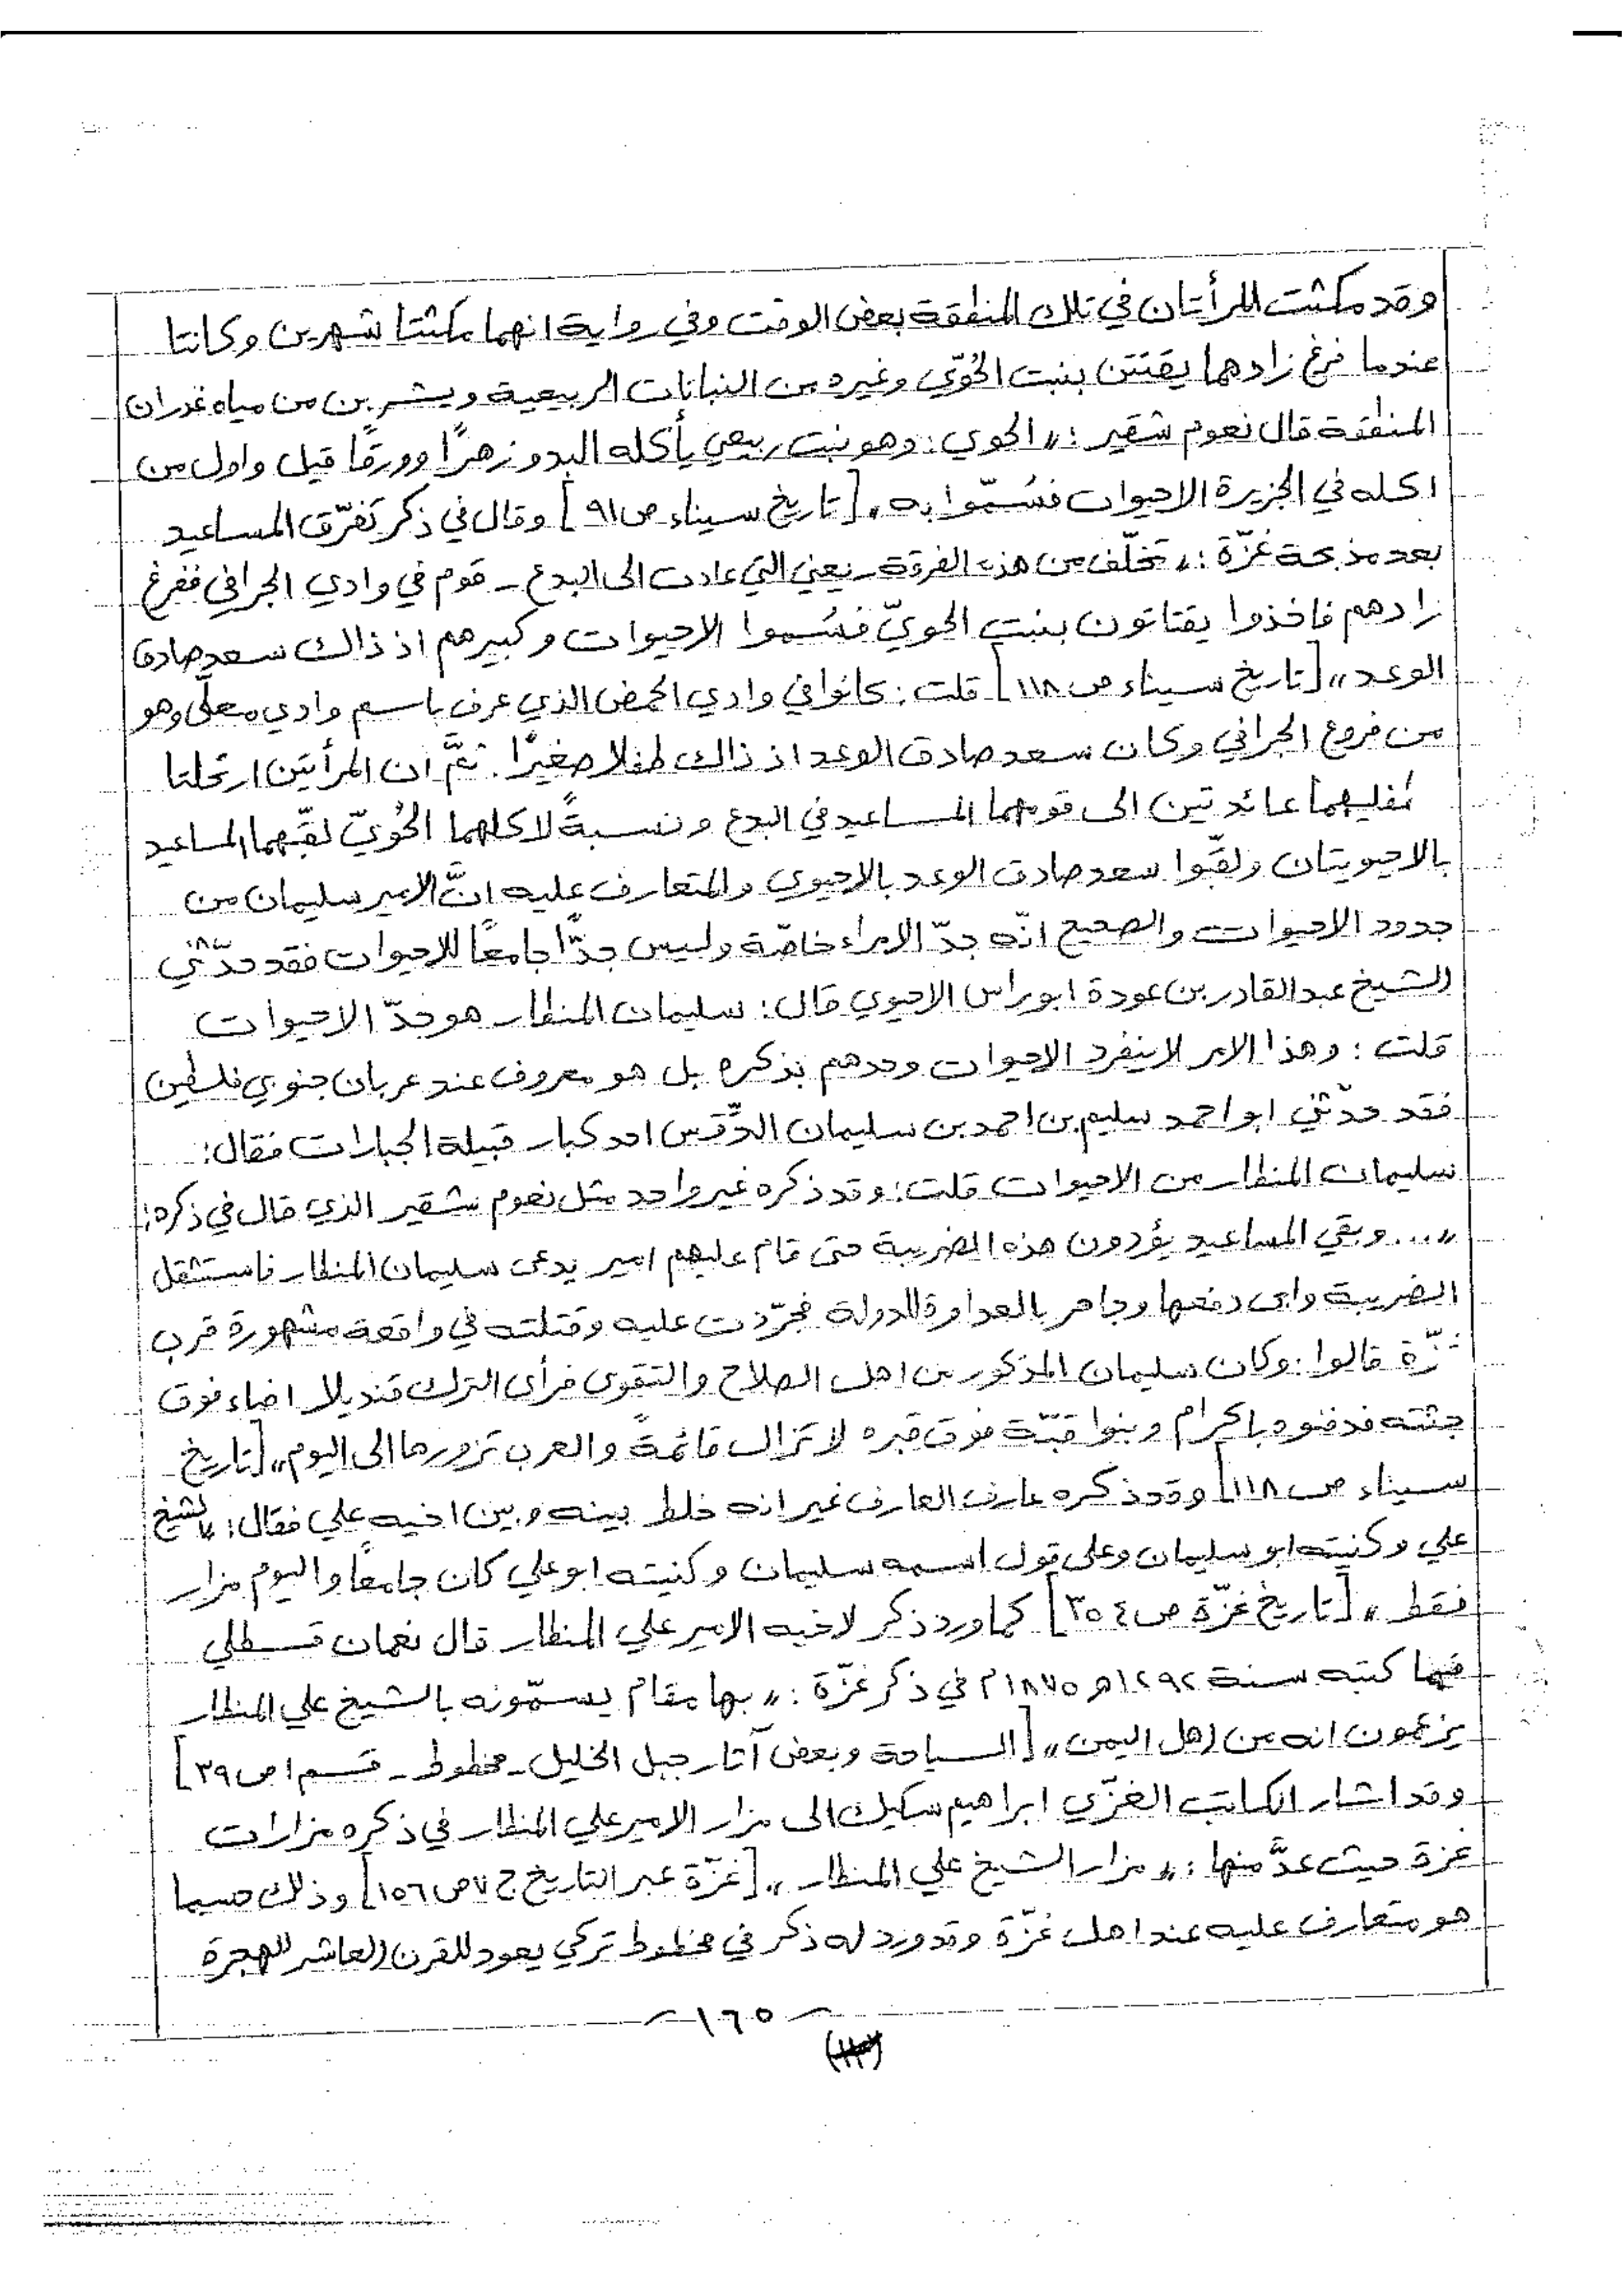 وقد مكثت المرأتان في تلك المنطقة بعض الوقت وفي رواية انهما مكثتا شهرين وكانتا
عندما فرغ زادهما يقتتن بنبت الحُوّي وغيره من النباتات الربيعية ويشربن من مياه غدران
المنطقة قال نعوم شقير : „ الحوي : وهو نبت ربيعي يأكله البدو زهرًا وورقًا قيل واول من
اكله في الجزيرة الاحيوات فسُمّوا به „ [تاريخ سيناء ص٩١] وقال في ذكر تفرّق المساعيد
بعد مذبحة غزّة : „ تخلّف من هذه الفرقة - يعني التي عادت الى البدع - قوم في وادي الجرافي ففرغ
زادهم فاخذوا يقتاتون بنبت الحويّ فسُموا الاحيوات وكبيرهم اذ ذاك سعد صادق
الوعد „ [تاريخ سيناء ص ١١٨] قلت : كانوا في وادي الحمض الذي عرف باسم وادي معلّى وهو
من فروع الجرافي وكان سعد صادق الوعد اذ ذاك طفلا صغيرًا . ثمَّ ان المرأتين ارتحلتا
بطفليهما عائدتين الى قومهما المساعيد في البدع ونسبةً لاكلهما الحُويّ لقّبهما المساعيد
بالاحيويتان ولقّبوا سعد صادق الوعد بالاحيوي والمتعارف عليه انَّ الامير سليمان من
جدود الاحيوات والصحيح انّه جدّ الامراء خاصّة وليس جدًّا جامعًا للاحيوات فقد حدّثني
الشيخ عبدالقادر بن عودة ابو راس الاحيوي قال : سليمان المنطار هو جدّ الاحيوات
قلت : وهذا الامر لا ينفرد الاحيوات وحدهم بذكره بل هو معروف عند عربان جنوبي فلسطين
فقد حدّثني ابو احمد سليم بن احمد بن سليمان الدَّقَس احد كبار قبيلة الجبارات فقال :
سليمان المنطار من الاحيوات قلت : وقد ذكره غير واحد مثل نعوم شقير الذي قال في ذكره :
„ ... وبقي المساعيد يؤدون هذه الضريبة حتى قام عليهم امير يدعى سليمان المنطار فاستثقل
الضريبة وابى دفعها وجاهر بالعداوة للدولة فجرّدت عليه وقتلته في واقعة مشهورة قرب
غزّة قالوا : وكان سليمان المذكور من اهل الصلاح والتقوى فرأى الترك قنديلا اضاء فوق
جثته فدفنوه باكرام وبنوا قبّة فوق قبره لا تزال قائمةً والعرب تزورها الى اليوم „ [تاريخ
سيناء ص ١١٨] وقد ذكره عارف العارف غير انه خلط بينه وبين اخيه علي فقال : „ الشيخ
علي وكنيته ابو سليمان وعلى قول اسمه سليمان وكنيته ابو علي كان جامعًا واليوم مزار
فقط „ [تاريخ غزّة ص ٣٥٤] كما ورد ذكر لاخيه الامير علي المنطار قال نعمان قسطلي
فيما كتبه سنة ١٢٩٢هـ ١٨٧٥م في ذكر غزّة : „ بها مقام يسمّونه بالشيخ علي المنطار
يزعمون انه من اهل اليمن „ [السياحة وبعض آثار جبل الخليل - مخطوط - قسم ١ ص ٣٩]
وقد اشار الكاتب الغزّي ابراهيم سكيك الى مزار الامير علي المنطار في ذكره مزارات
غزة حيث عدَّ منها : „ مزار الشيخ علي المنطار „ [غزّة عبر التاريخ ج ٧ ص ١٥٦] وذلك حسبما
هو متعارف عليه عند اهل غزّة وقد ورد له ذكر في مخطوط تركي يعود للقرن العاشر للهجرة
~ ١٦٥ ~